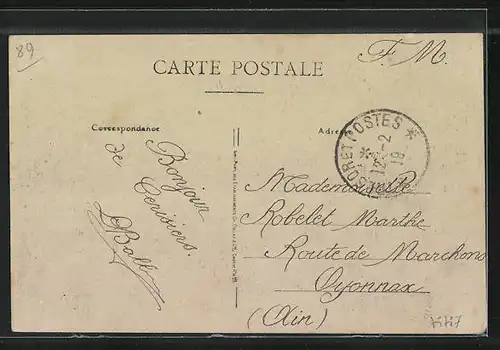 89
F. M.
CARTE POSTALE
Correspondance
Adresse
Bonjour
de
Cerisiers.
TRÉSOR ET POSTES
12-2
18
Mademoiselle
Robelet Marthe
Route de Marchons
Oyonnax
(Ain)